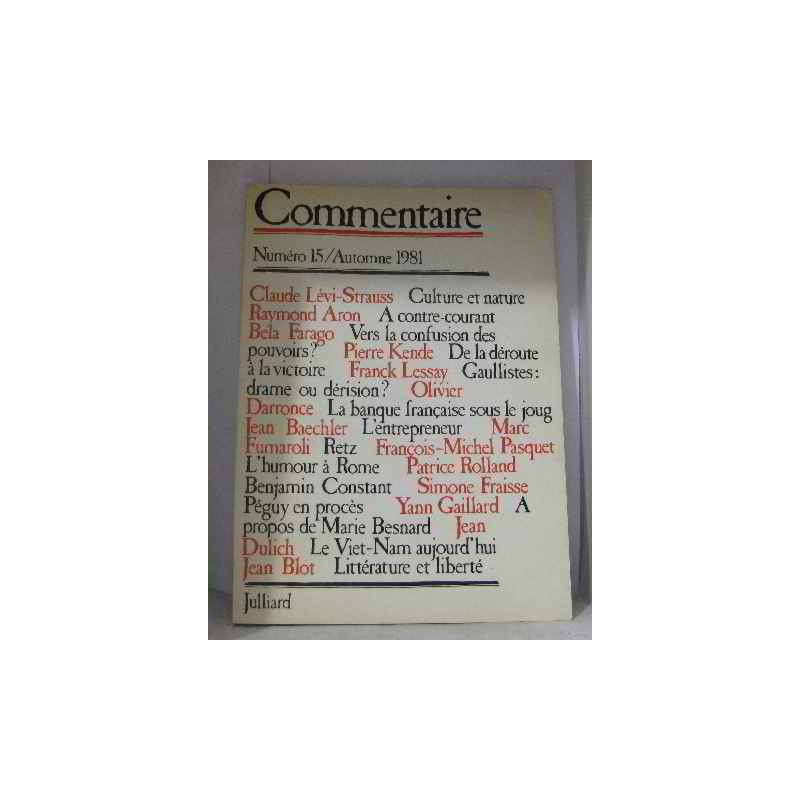 Commentaire
Numéro 15/Automne 1981
Claude Lévi-Strauss Culture et nature
Raymond Aron A contre-courant
Béla Farago Vers la confusion des
pouvoirs? Pierre Kende De la déroute
à la victoire Franck Lessay Gaullistes:
drame ou dérision? Olivier
Darronce La banque française sous le joug
Jean Baechler L'entrepreneur Marc
Fumaroli Retz François-Michel Pasquet
L'humour à Rome Patrice Rolland
Benjamin Constant Simone Fraisse
Péguy en procès Yann Gaillard A
propos de Marie Besnard Jean
Dulich Le Viet-Nam aujourd'hui
Jean Blot Littérature et liberté
Julliard